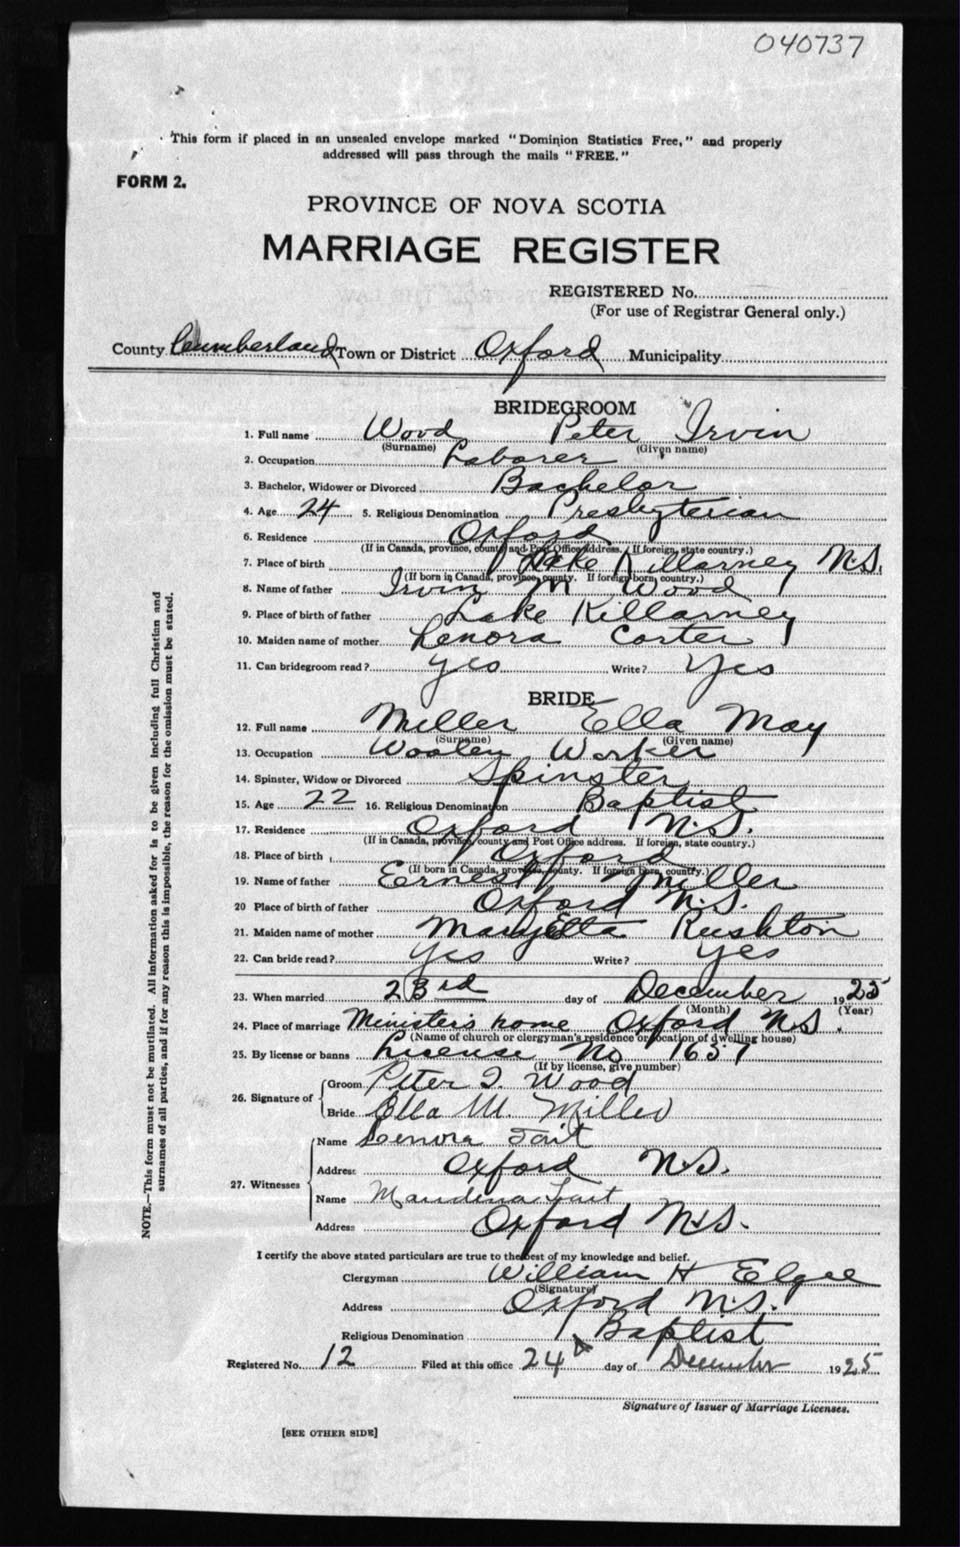 040737
This form if placed in an unsealed envelope marked "Dominion Statistics Free," and properly
addressed will pass through the mails "FREE."
FORM 2.
PROVINCE OF NOVA SCOTIA
MARRIAGE REGISTER
REGISTERED No.
(For use of Registrar General only.)
County Cumberland Town or District Oxford Municipality
BRIDEGROOM
1. Full name Wood Peter Irvin
(Surname) (Given name)
2. Occupation Laborer
3. Bachelor, Widower or Divorced Bachelor
4. Age 24 5. Religious Denomination Presbyterian
6. Residence Oxford
(If in Canada, province, county and Post Office address. If foreign, state country.)
7. Place of birth Lake Killarney N.S.
(If born in Canada, province, county. If foreign born, country.)
8. Name of father Irvin M Wood
9. Place of birth of father Lake Killarney
10. Maiden name of mother Lenora Carter
11. Can bridegroom read? yes Write? Yes
BRIDE
12. Full name Miller Ella May
(Surname) (Given name)
13. Occupation Woolen Worker
14. Spinster, Widow or Divorced Spinster
15. Age 22 16. Religious Denomination Baptist
17. Residence Oxford N.S.
(If in Canada, province, county and Post Office address. If foreign, state country.)
18. Place of birth Oxford
(If born in Canada, province, county. If foreign born, country.)
19. Name of father Ernest Miller
20 Place of birth of father Oxford N.S.
21. Maiden name of mother Rushton
22. Can bride read? yes Write? yes
23. When married 23rd day of December 1925
(Month) (Year)
24. Place of marriage Minister's home Oxford N.S.
(Name of church or clergyman's residence or location of dwelling house)
25. By license or banns License No 1657
(If by license, give number)
26. Signature of
Groom Peter I. Wood
Bride Ella M. Miller
27. Witnesses
Name Lenora Tait
Address Oxford N.S.
Name Tait
Address Oxford N.S.
I certify the above stated particulars are true to the best of my knowledge and belief.
Clergyman William H Elgee
(Signature)
Address Oxford N.S.
Religious Denomination Baptist
Registered No. 12 Filed at this office 24 day of December 1925
Signature of Issuer of Marriage Licenses.
[SEE OTHER SIDE]
NOTE.—This form must not be mutilated. All information asked for is to be given including full Christian and
surnames of all parties, and if for any reason this is impossible, the reason for the omission must be stated.